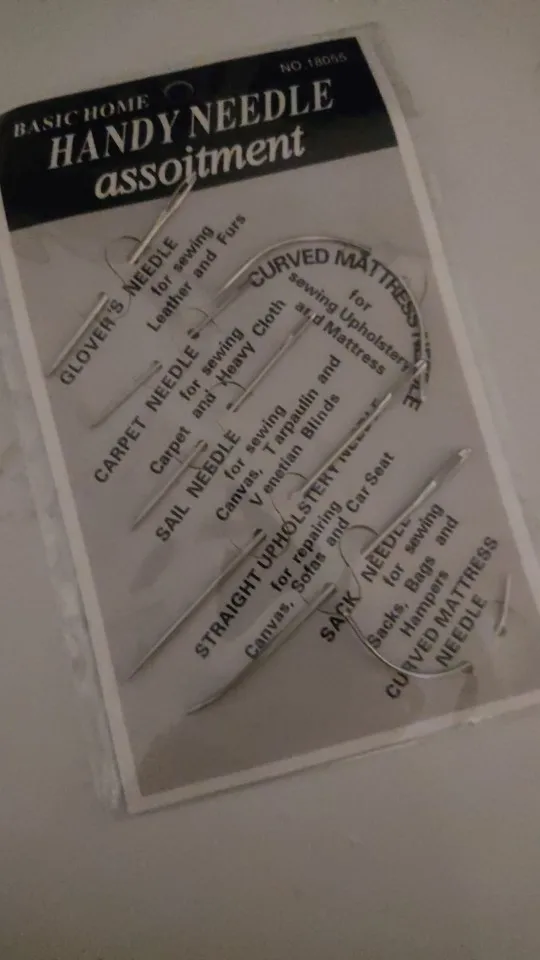 NO.18055
BASIC HOME
HANDY NEEDLE
assoitment
GLOVER'S NEEDLE
for sewing
Leather and Furs
CURVED MATTRESS NEEDLE
for
sewing Upholstery
and Mattress
CARPET NEEDLE
for sewing
Carpet and Heavy Cloth
SAIL NEEDLE
for sewing
Canvas, Tarpaulin and
Venetian Blinds
STRAIGHT UPHOLSTERY NEEDLE
for repairing
Canvas, Sofas and Car Seat
SACK NEEDLE
for sewing
Sacks, Bags and
Hampers
CURVED MATTRESS
NEEDLE